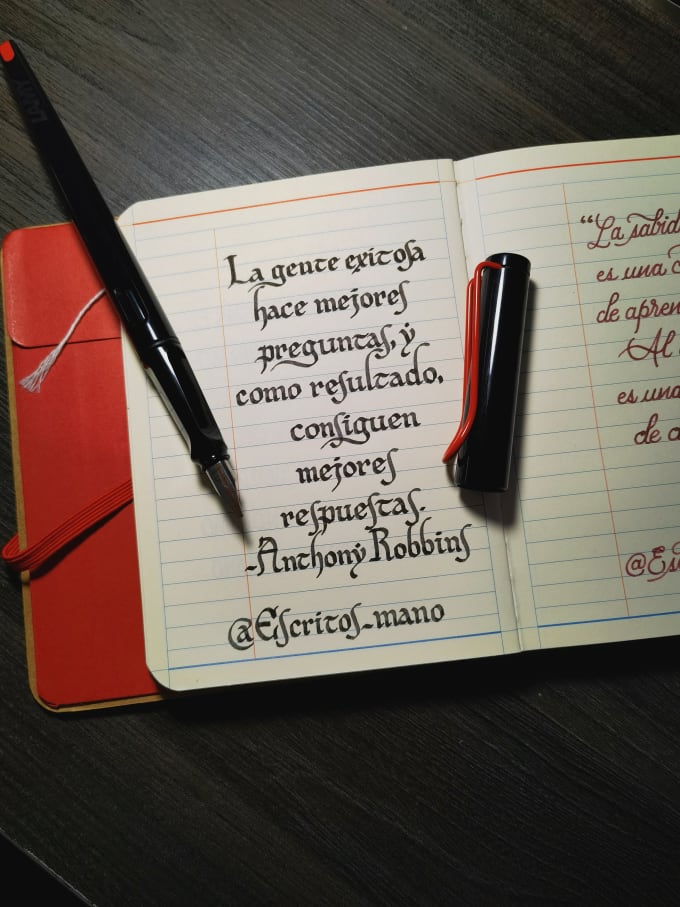 LAMY
La gente exitosa
hace mejores
preguntas, ÿ
como resultado,
consiguen
mejores
respuestas.
-Anthonÿ Robbins
@Escritos_mano
“La sabid
es una c
de apren
Al
es una
de a
@Es